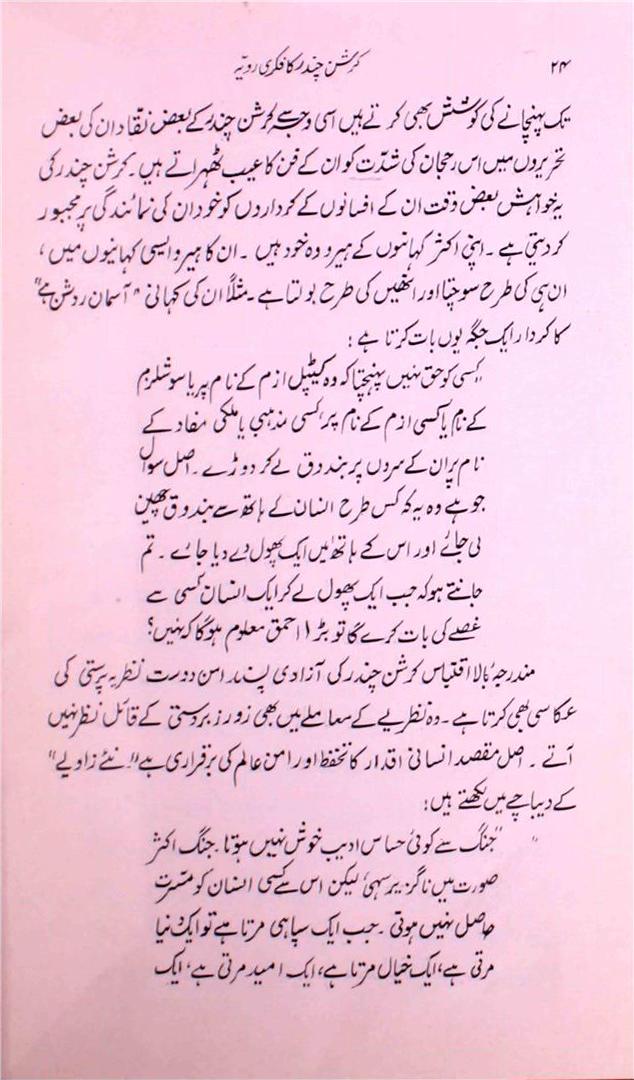 ۲۴ کرشن چندر کا فکری رویّہ
تک پہنچانے کی کوشش بھی کرتے ہیں اسی وجہ سے کرشن چندر کے بعض نقاد ان کی بعض
تحریروں میں اس رجحان کی شدّت کو ان کے فن کا عیب ٹھہراتے ہیں۔ کرشن چندر کی
یہ خواہش بعض وقت ان کے افسانوں کے کرداروں کو خود ان کی نمائندگی پر مجبور
کردیتی ہے۔ اپنی اکثر کہانیوں کے ہیرو وہ خود ہیں۔ ان کا ہیرو ایسی کہانیوں میں،
ان ہی کی طرح سوچتا اور انھیں کی طرح بولتا ہے۔ مثلاً ان کی کہانی "آسمان روشن ہے"
کا کردار ایک جگہ یوں بات کرتا ہے:
"کسی کو حق نہیں پہنچتا کہ وہ کیپٹل ازم کے نام پر یا سوشلزم
کے نام یا کسی ازم کے نام پر، کسی مذہبی یا ملکی مفاد کے
نام پر ان کے سروں پر بندوق لے کر دوڑے۔ اصل سوال
جو ہے وہ یہ کہ کس طرح انسان کے ہاتھ سے بندوق چھین
لی جائے اور اس کے ہاتھ میں ایک پھول دے دیا جائے۔ تم
جانتے ہو کہ جب ایک پھول لے کر ایک انسان کسی سے
غصے کی بات کرے گا تو بڑا احمق معلوم ہوگا کہ نہیں؟
مندرجۂ بالا اقتباس کرشن چندر کی آزادی پسند امن دوست نظریہ پرستی کی
عکاسی بھی کرتا ہے۔ وہ نظریے کے معاملے میں بھی زور زبردستی کے قائل نظر نہیں
آتے۔ اصل مقصد انسانی اقدار کا تحفظ اور امن عالم کی برقراری ہے "نئے زاویے"
کے دیباچے میں لکھتے ہیں:
"جنگ سے کوئی حساس ادیب خوش نہیں ہوتا۔ جنگ اکثر
صورت میں ناگزیر سہی لیکن اس سے کسی انسان کو مسرت
حاصل نہیں ہوتی۔ جب ایک سپاہی مرتا ہے تو ایک دنیا
مرتی ہے، ایک خیال مرتا ہے، ایک امید مرتی ہے، ایک